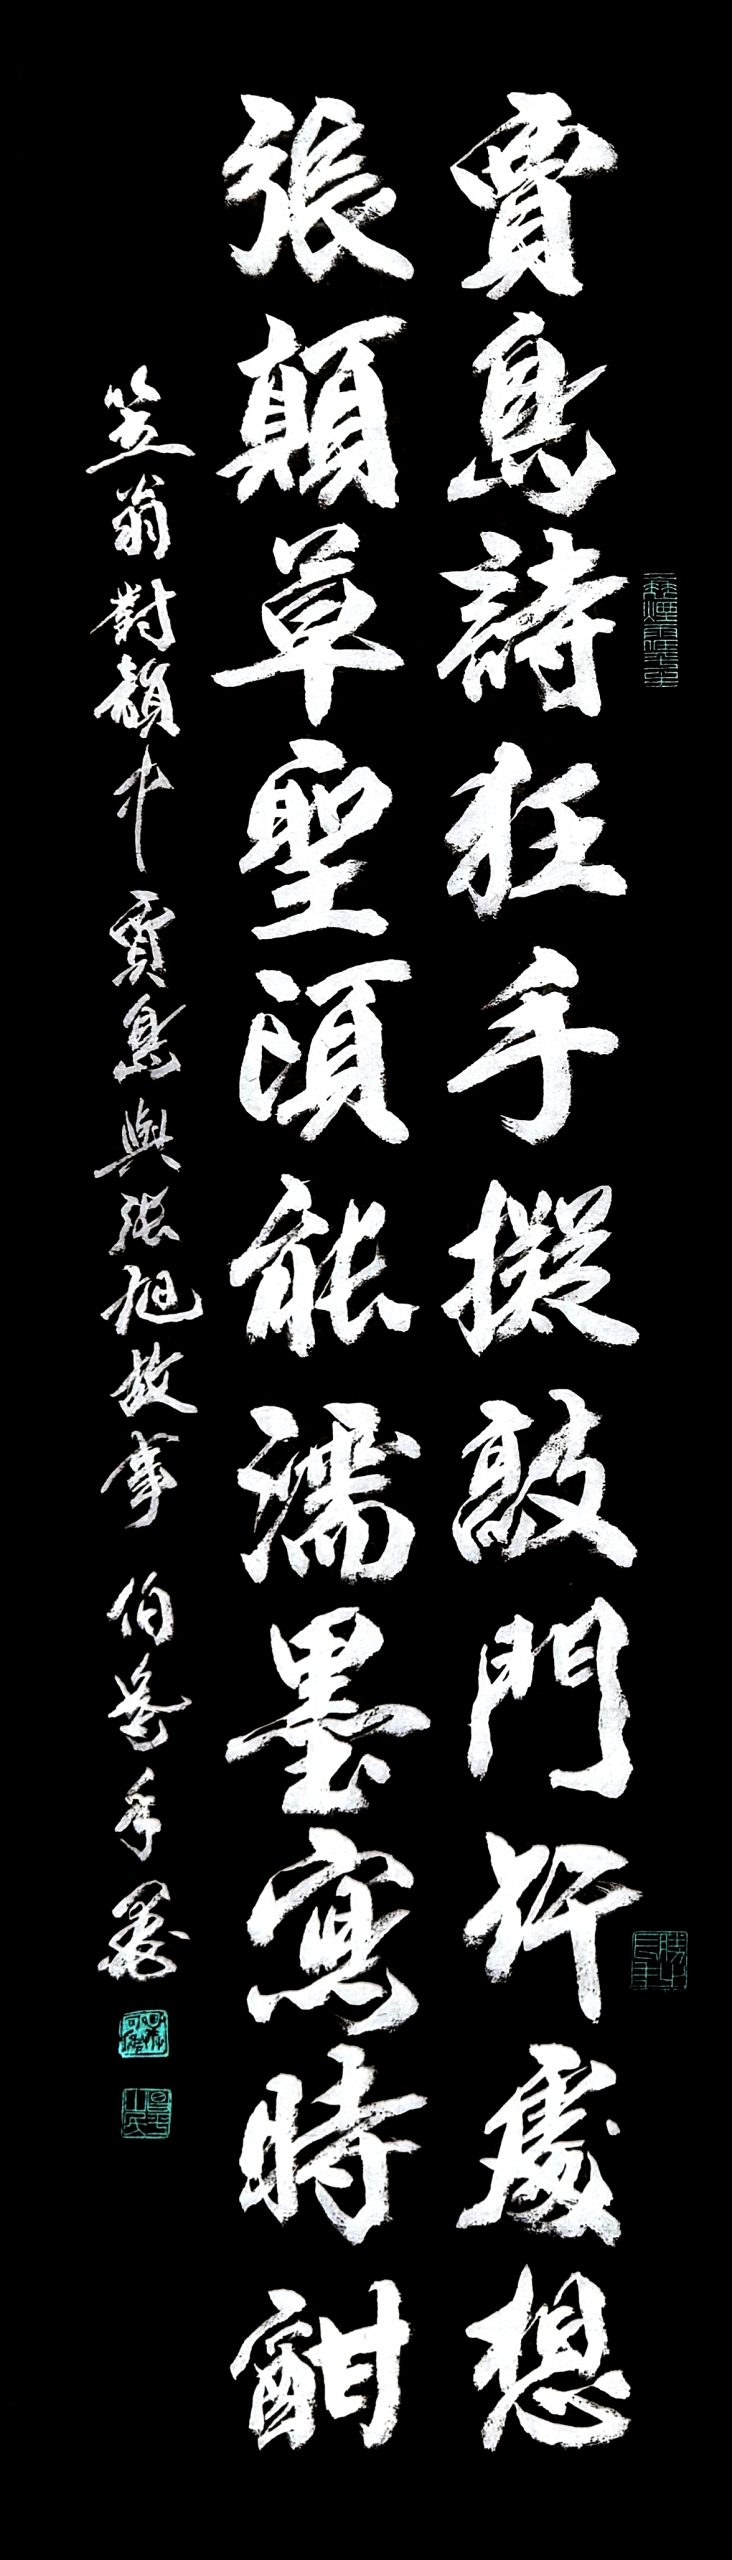 賈島詩狂手擬敲門行處想
張顛草聖頭能濡墨寫時酣
笠翁對韻中賈島與張旭故事 伯手墨